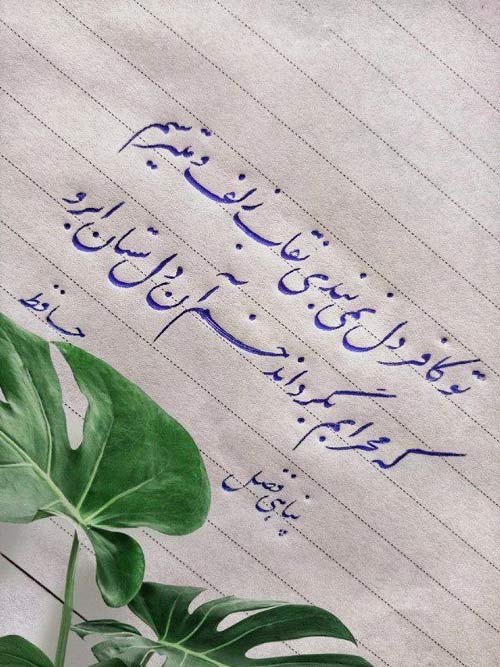 تو کافر دل نمی‌بندی نقاب زلف و میترسم
که محرابم بگرداند خم آن دل ستان ابرو
حافظ